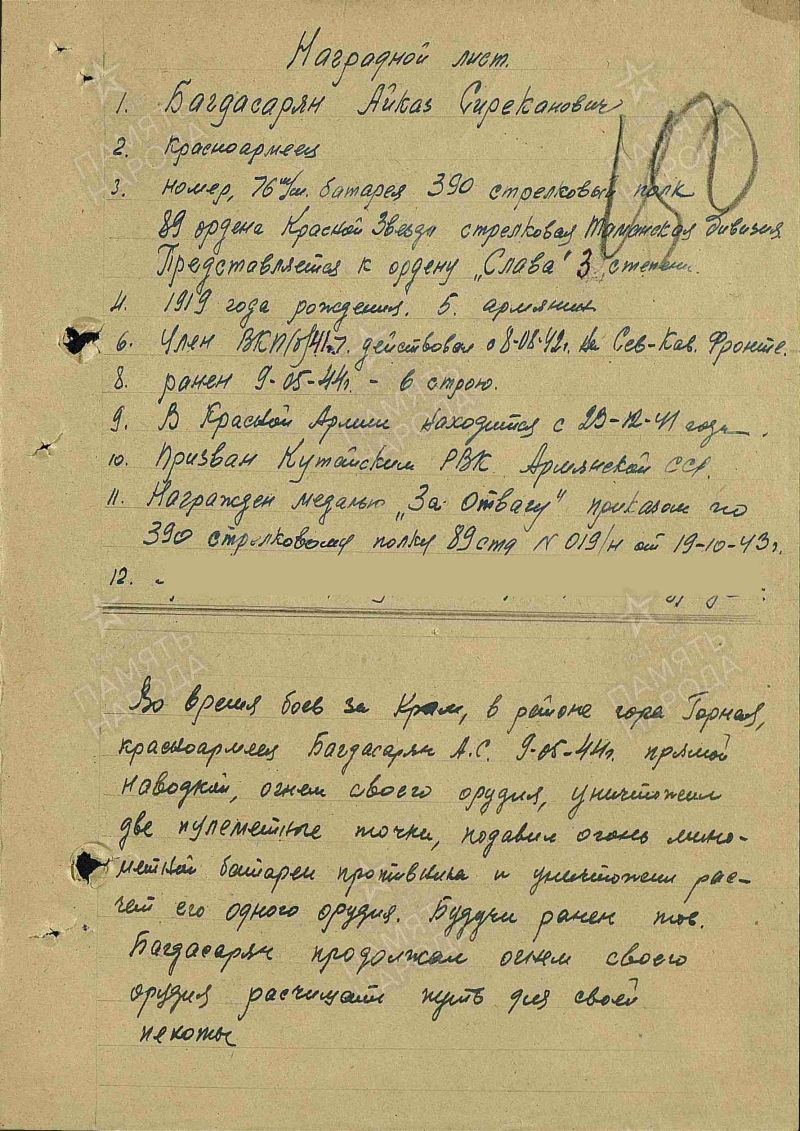 Наградной лист.
1. Багдасарян Айказ Сиреканович
2. Красноармеец
3. номер, 76 м/м. батарея 390 стрелковый полк
89 ордена Красной Звезды стрелковая Таманская дивизия
Представляется к ордену „Слава" 3 степени.
4. 1919 года рождения. 5. армянин
6. Член ВКП(б) 41 г. действовал с 8-08-42г. на Сев-Кав. Фронте.
8. ранен 9-05-44г. - в строю.
9. В Красной Армии находится с 23-12-41 года.
10. Призван РВК Армянской ССР.
11. Награжден медалью „За Отвагу" приказом по
390 стрелковому полку 89 стд N 019/н от 19-10-43г.
12.
Во время боев за Крым, в районе гора Горная,
красноармеец Багдасарян А.С. 9-05-44г. прямой
наводкой, огнем своего орудия, уничтожил
две пулеметные точки, подавил огонь мино-
метной батареи противника и уничтожил рас-
чет его одного орудия. Будучи ранен тов.
Багдасарян продолжал огнем своего
орудия расчищать путь для своей
пехоты
150
ПАМЯТЬ НАРОДА